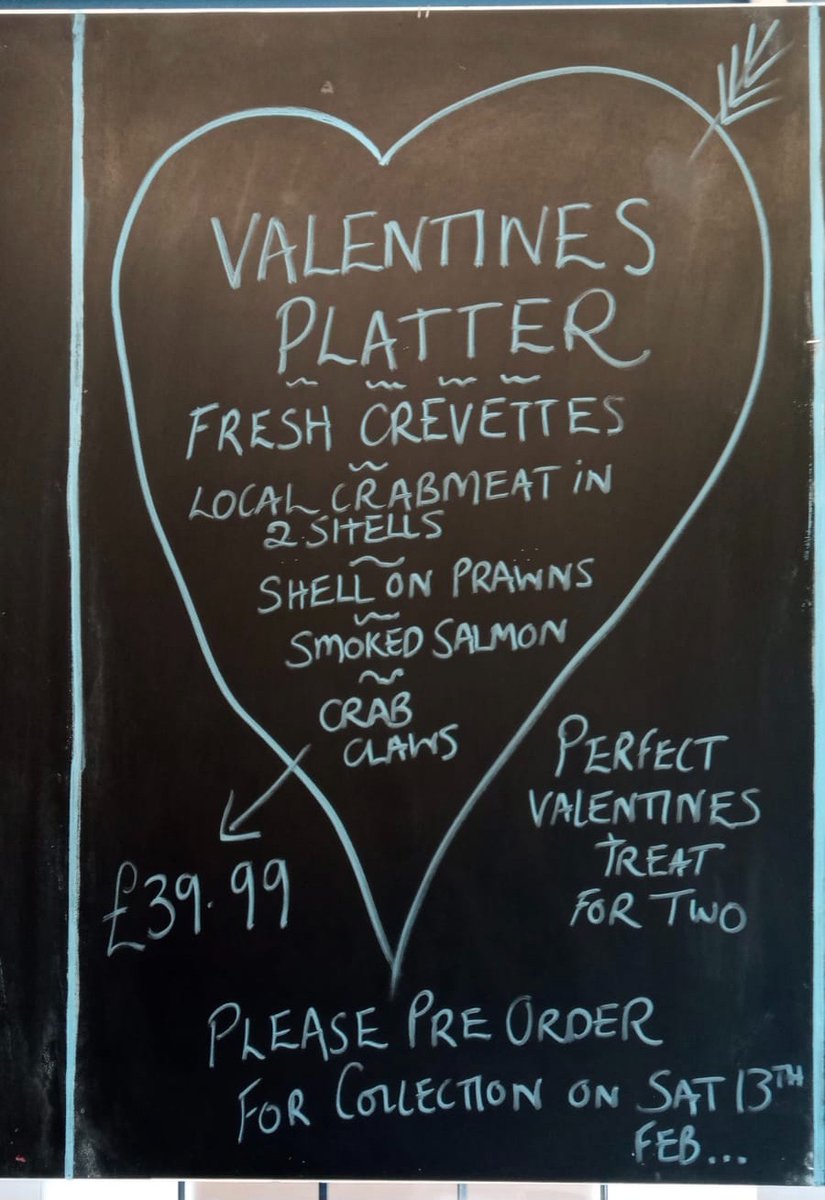 VALENTINES
PLATTER
FRESH CREVETTES
LOCAL CRABMEAT iN
2 SHELLS
SHELL ON PRAWNS
SMOKED SALMON
CRAB
CLAWS
£39.99
PERFECT
VALENTINES
TREAT
FOR TWO
PLEASE PRE ORDER
FOR COLLECTION ON SAT 13TH
FEB...